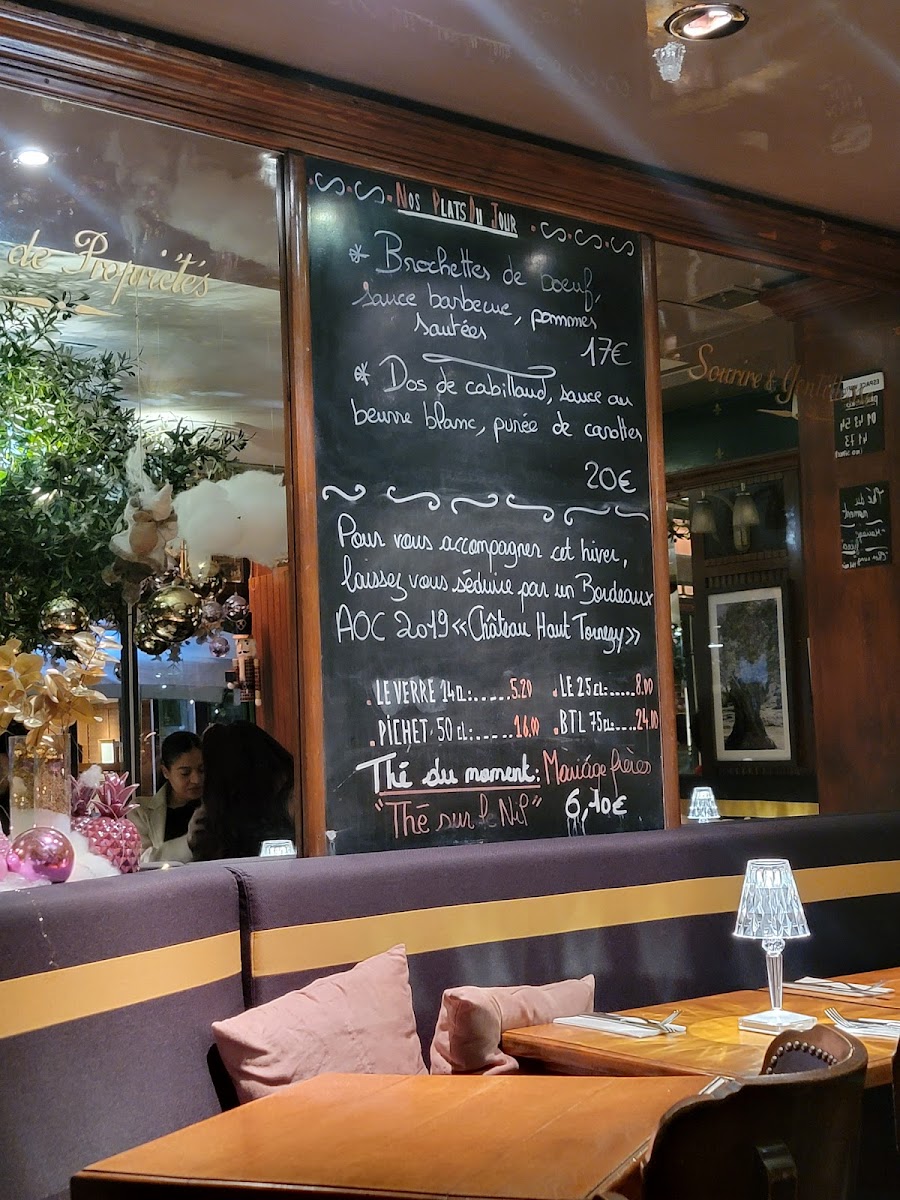 de Propriétés
Nos Plats Du Jour
* Brochettes de boeuf,
sauce barbecue, pommes
sautées
17€
* Dos de cabillaud, sauce au
beurre blanc, purée de carottes
20€
Pour vous accompagner cet hiver,
laissez vous séduire par un Bordeaux
AOC 2019 «Château Haut Tornezy»
.LE VERRE 14 cl:......5.20 .LE 25 cl:.....8.00
.PICHET. 50 cl:......16.00 .BTL 75cl:....24.00
Thé du moment: Mariage frères
"Thé sur le Nil" 6,10€
Sourire &